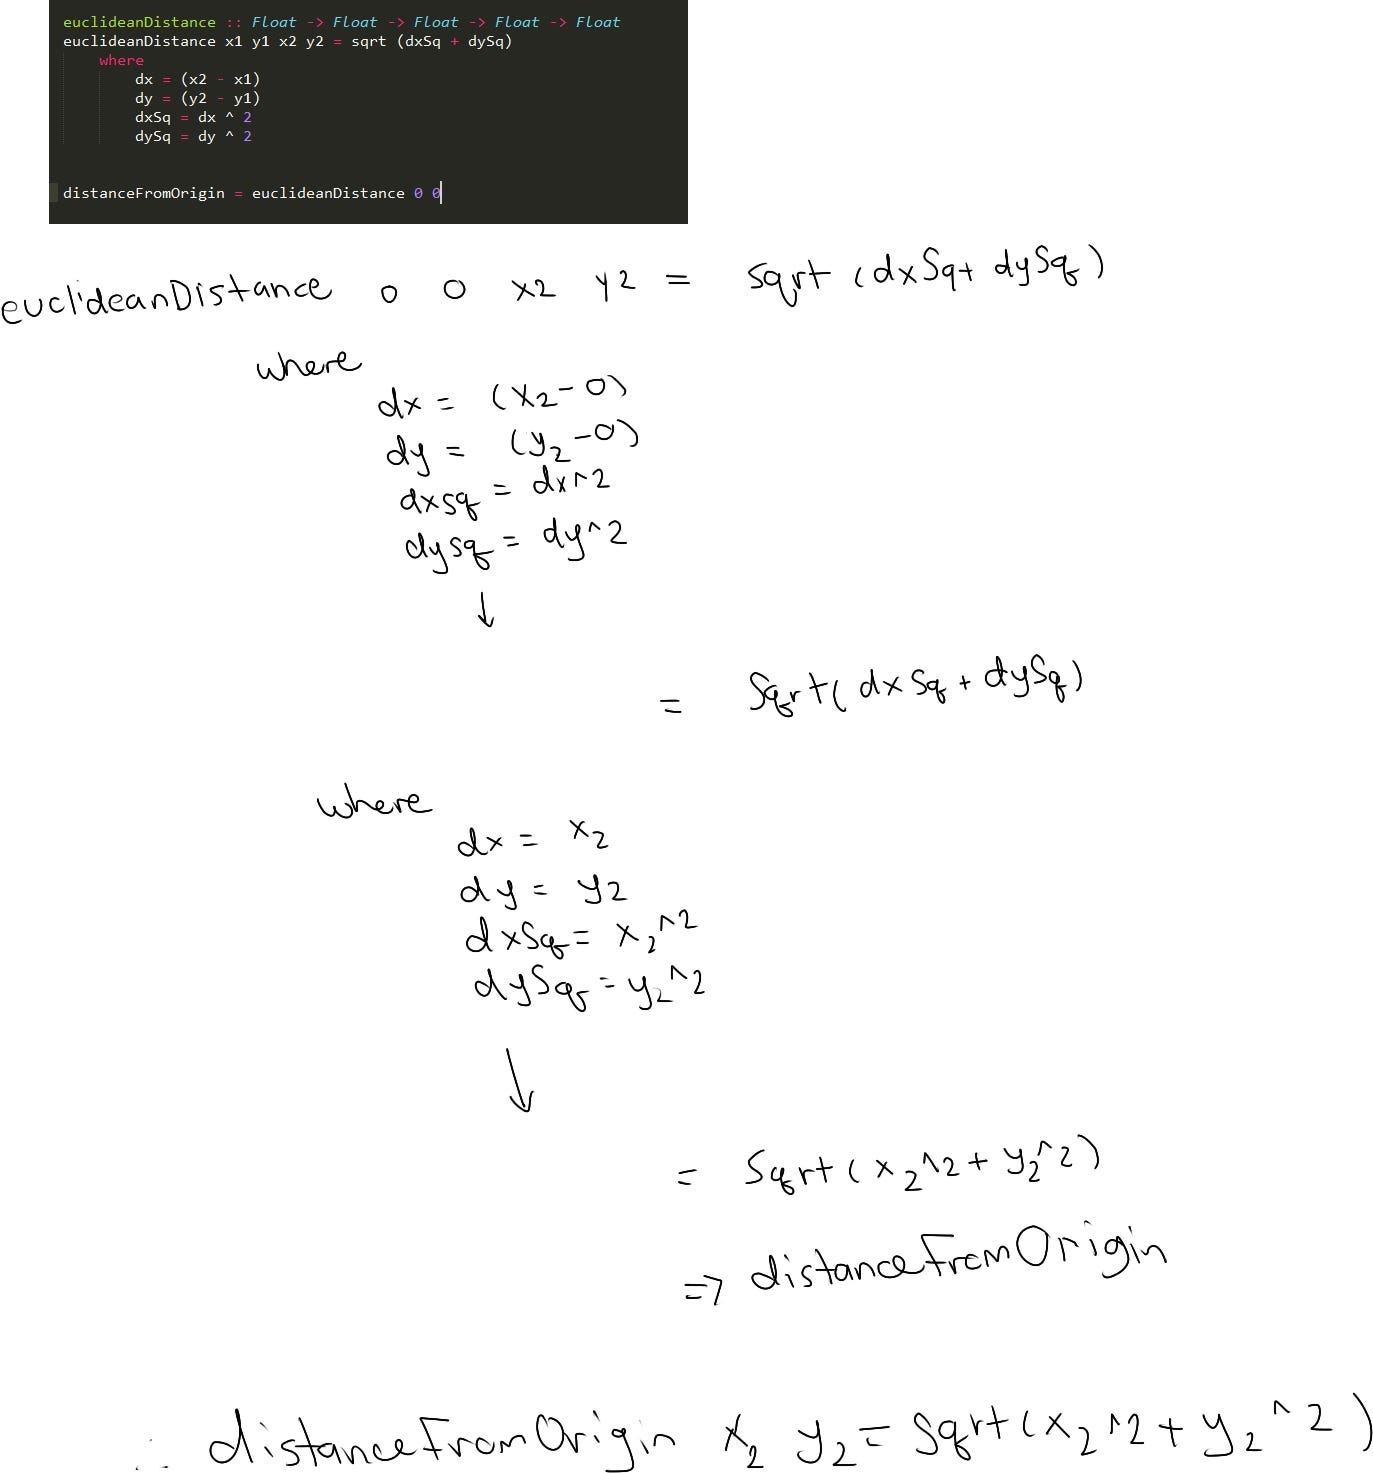 euclideanDistance :: Float -> Float -> Float -> Float -> Float
euclideanDistance x1 y1 x2 y2 = sqrt (dxSq + dySq)
where
dx = (x2 - x1)
dy = (y2 - y1)
dxSq = dx ^ 2
dySq = dy ^ 2
distanceFromOrigin = euclideanDistance 0 0
euclideanDistance 0 0 x2 y2 = sqrt (dxSq + dySq)
where
dx = (x2 - 0)
dy = (y2 - 0)
dxsq = dx^2
dysq = dy^2
↓
= Sqrt( dxSq + dySq)
where
dx = x2
dy = y2
dxSq = x2^2
dySq = y2^2
↓
= Sqrt (x2^2 + y2^2)
=> distanceFromOrigin
∴ distanceFromOrigin x2 y2 = Sqrt(x2^2 + y2^2)